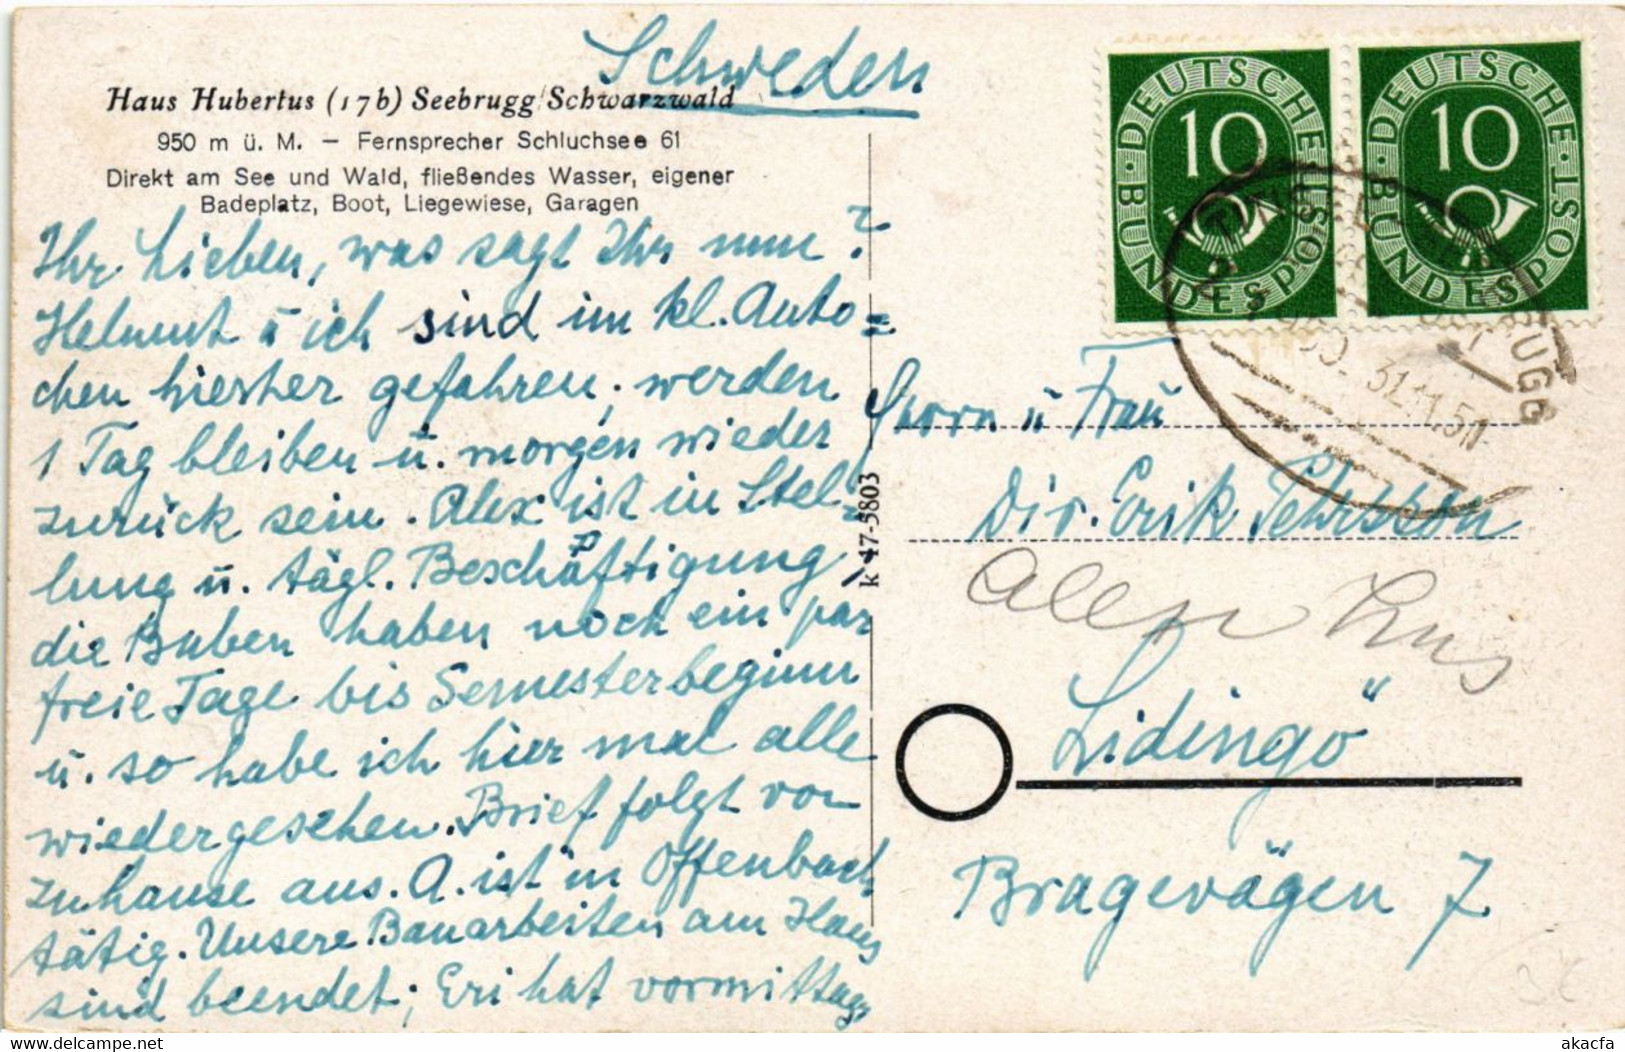 Schweden
Haus Hubertus (17b) Seebrugg/Schwarzwald
950 m ü. M. — Fernsprecher Schluchsee 61
Direkt am See und Wald, fließendes Wasser, eigener
Badeplatz, Boot, Liegewiese, Garagen
Ihr Lieben, was sagt Ihr nun?
Helmut u ich sind im kl. Auto=
chen hierher gefahren, werden
1 Tag bleiben u. morgen wieder
zurück sein. Alex ist in Stel-
lung u. tägl. Beschäftigung,
die Buben haben noch ein par
freie Tage bis Semesterbeginn
u. so habe ich hier mal alle
wiedergesehen. Brief folgt von
zuhause aus. A. ist in Offenbach
tätig. Unsere Bauarbeiten am Haus
sind beendet; Eri hat vormittags
k 47-5803
DEUTSCHE BUNDESPOST
10
DEUTSCHE BUNDESPOST
10
BRUGG
Herrn u Frau
Dir. Erik Pehrsson
Lidingö
Bragevägen 7
akacfa.com
akacfa